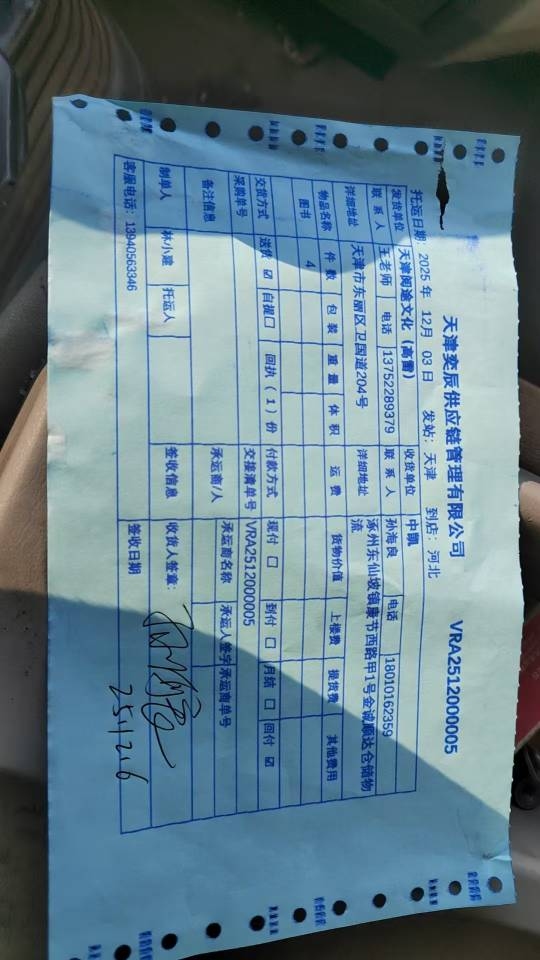 天津奕辰供应链管理有限公司 VRA2512000005
托运日期: 2025 年 12 月 03 日 发站: 天津 到店: 河北
发货单位 天津阅途文化(高雷) 收货单位 中凯
联系人 王老师 电话 13752289379 联系人 孙海良 电话 18010162359
详细地址 天津市东丽区卫国道204号 详细地址 涿州东仙坡镇康节西路甲1号金诚顺达仓储物流
物品名称 件数 包装 重量 体积 运费 货物价值 上楼费 提货费 其他费用
图书 4
交货方式 送货 ☑ 自提 □ 回执(1)份 付款方式 现付 □ 到付 □ 月结 □ 回付 ☑
采购单号 交接清单号 VRA2512000005
备注信息 承运商/人 承运商名称 承运人签字 承运商单号
制单人 林小建 托运人 签收信息 收货人签章:
客服电话: 13940563346 签收日期 25.12.6